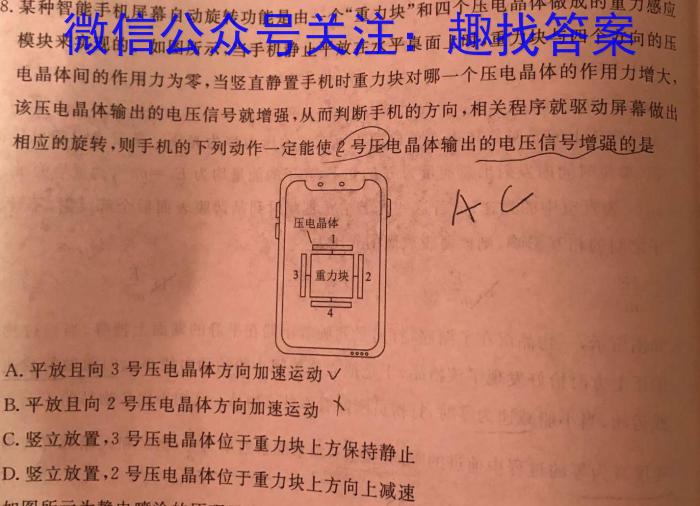 8. 某种智能手机屏幕自动旋转功能是由一个“重力块”和四个压电晶体做成的重力感应
微信公众号关注：趣找答案
电晶体间的作用力为零，当竖直静置手机时重力块对哪一个压电晶体的作用力增大，
该压电晶体输出的电压信号就增强，从而判断手机的方向，相关程序就驱动屏幕做出
相应的旋转，则手机的下列动作一定能使2号压电晶体输出的电压信号增强的是
AC
压电晶体
1
3 重力块 2
4
A. 平放且向3号压电晶体方向加速运动 ✓
B. 平放且向2号压电晶体方向加速运动 ×
C. 竖立放置，3号压电晶体位于重力块上方保持静止
D. 竖立放置，2号压电晶体位于重力块上方向上减速